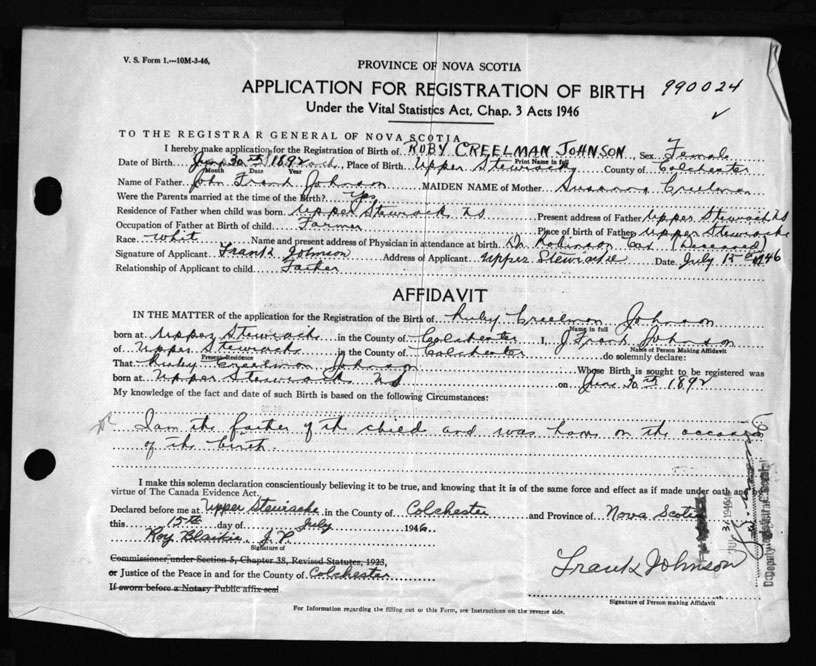 V. S. Form 1.---10M-3-46,
PROVINCE OF NOVA SCOTIA
APPLICATION FOR REGISTRATION OF BIRTH 990024
Under the Vital Statistics Act, Chap. 3 Acts 1946
TO THE REGISTRAR GENERAL OF NOVA SCOTIA
I hereby make application for the Registration of Birth of RUBY CREELMAN JOHNSON, Sex Female
Print Name in full
Date of Birth 30th 1892, Place of Birth Upper Stewiacke County of Colchester
Month Date Year
Name of Father John Frank Johnson MAIDEN NAME of Mother Susanna Creelman
Were the Parents married at the time of the Birth? Yes
Residence of Father when child was born Upper Stewiack NS Present address of Father Upper Stewiack NS
Occupation of Father at Birth of child Farmer Place of birth of Father Upper Stewiacke
Race White Name and present address of Physician in attendance at birth Dr Robinson Cox (Deceased)
Signature of Applicant Frank Johnson Address of Applicant Upper Stewiacke Date July 15th 1946
Relationship of Applicant to child Father
AFFIDAVIT
IN THE MATTER of the application for the Registration of the Birth of Ruby Creelman Johnson
Name in full
born at Upper Stewiack in the County of Colchester I, J Frank Johnson
Name of Person Making Affidavit
of Upper Stewiack in the County of Colchester do solemnly declare:
Present Residence
That Ruby Creelman Johnson Whose Birth is sought to be registered was
born at Upper Stewiack NS on June 30th 1892
My knowledge of the fact and date of such Birth is based on the following Circumstances:
I am the father of the child and was home on the
of the birth.
I make this solemn declaration conscientiously believing it to be true, and knowing that it is of the same force and effect as if made under oath and by
virtue of The Canada Evidence Act.
Declared before me at Upper Stewiacke in the County of Colchester and Province of Nova Scotia
this 15th day of July 1946
Roy Blaikie J. P.
Signature of
Commissioner under Section 5, Chapter 38, Revised Statutes, 1923,
or Justice of the Peace in and for the County of Colchester
If sworn before a Notary Public affix seal
Frank Johnson
Signature of Person making Affidavit
For Information regarding the filling out of this Form, see Instructions on the reverse side.